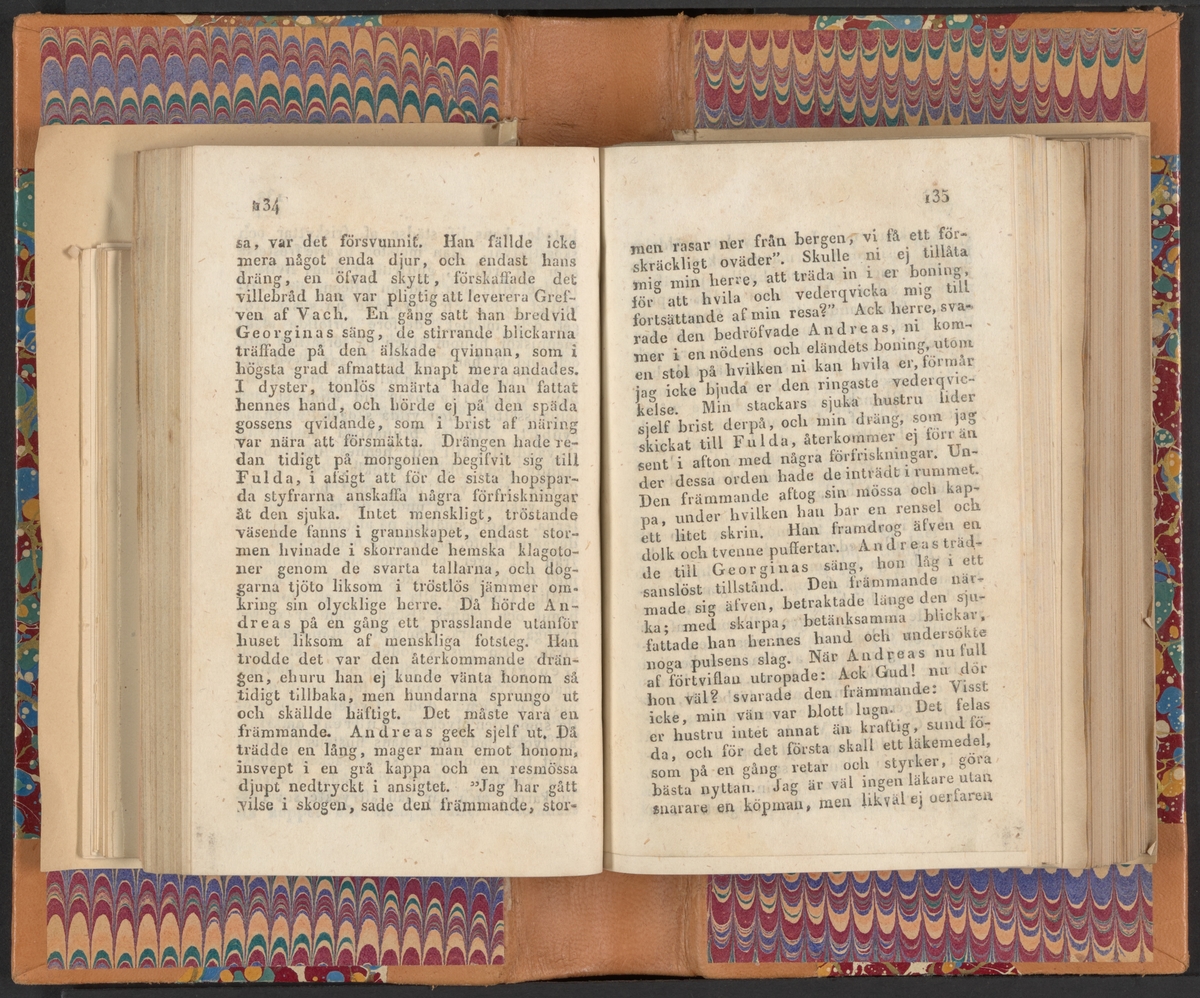 134
sa, var det försvunnit. Han fällde icke
mera något enda djur, och endast hans
dräng, en öfvad skytt, förskaffade det
villebråd han var pligtig att leverera Gref-
ven af Vach. En gång satt han bredvid
Georginas säng, de stirrande blickarna
träffade på den älskade qvinnan, som i
högsta grad afmattad knapt mera andades.
I dyster, tonlös smärta hade han fattat
hennes hand, och hörde ej på den späda
gossens qvidande, som i brist af näring
var nära att försmäkta. Drängen hade re-
dan tidigt på morgonen begifvit sig till
Fulda, i afsigt att för de sista hopspar-
da styfrarna anskaffa några förfriskningar
åt den sjuka. Intet menskligt, tröstande
väsende fanns i grannskapet, endast stor-
men hvinade i skorrande hemska klagoto-
ner genom de svarta tallarna, och dog-
garna tjöto liksom i tröstlös jämmer om-
kring sin olycklige herre. Då hörde An-
dreas på en gång ett prasslande utanför
huset liksom af menskliga fotsteg. Han
trodde det var den återkommande drän-
gen, ehuru han ej kunde vänta honom så
tidigt tillbaka, men hundarna sprungo ut
och skällde häftigt. Det måste vara en
främmande. Andreas geck sjelf ut. Då
trädde en lång, mager man emot honom,
insvept i en grå kappa och en resmössa
djupt nedtryckt i ansigtet. ”Jag har gått
vilse i skogen, sade den främmande, stor-
135
men rasar ner från bergen, vi få ett för-
skräckligt oväder”. Skulle ni ej tillåta
mig min herre, att träda in i er boning,
för att hvila och vederqvicka mig till
fortsättande af min resa?” Ack herre, sva-
rade den bedröfvade Andreas, ni kom-
mer i en nödens och eländets boning, utom
en stol på hvilken ni kan hvila er, förmår
jag icke bjuda er den ringaste vederqvic-
kelse. Min stackars sjuka hustru lider
sjelf brist derpå, och min dräng, som jag
skickat till Fulda, återkommer ej förr än
sent i afton med några förfriskningar. Un-
der dessa orden hade de inträdt i rummet.
Den främmande aftog sin mössa och kap-
pa, under hvilken han bar en rensel och
ett litet skrin. Han framdrog äfven en
dolk och tvenne puffertar. Andreas träd-
de till Georginas säng, hon låg i ett
sanslöst tillstånd. Den främmande när-
made sig äfven, betraktade länge den sju-
ka; med skarpa, betänksamma blickar,
fattade han hennes hand och undersökte
noga pulsens slag. När Andreas nu full
af förtviflan utropade: Ack Gud! nu dör
hon väl? svarade den främmande: Visst
icke, min vän var blott lugn. Det felas
er hustru intet annat än kraftig, sund fö-
da, och för det första skall ett läkemedel,
som på en gång retar och styrker, göra
bästa nyttan. Jag är väl ingen läkare utan
snarare en köpman, men likväl ej oerfaren